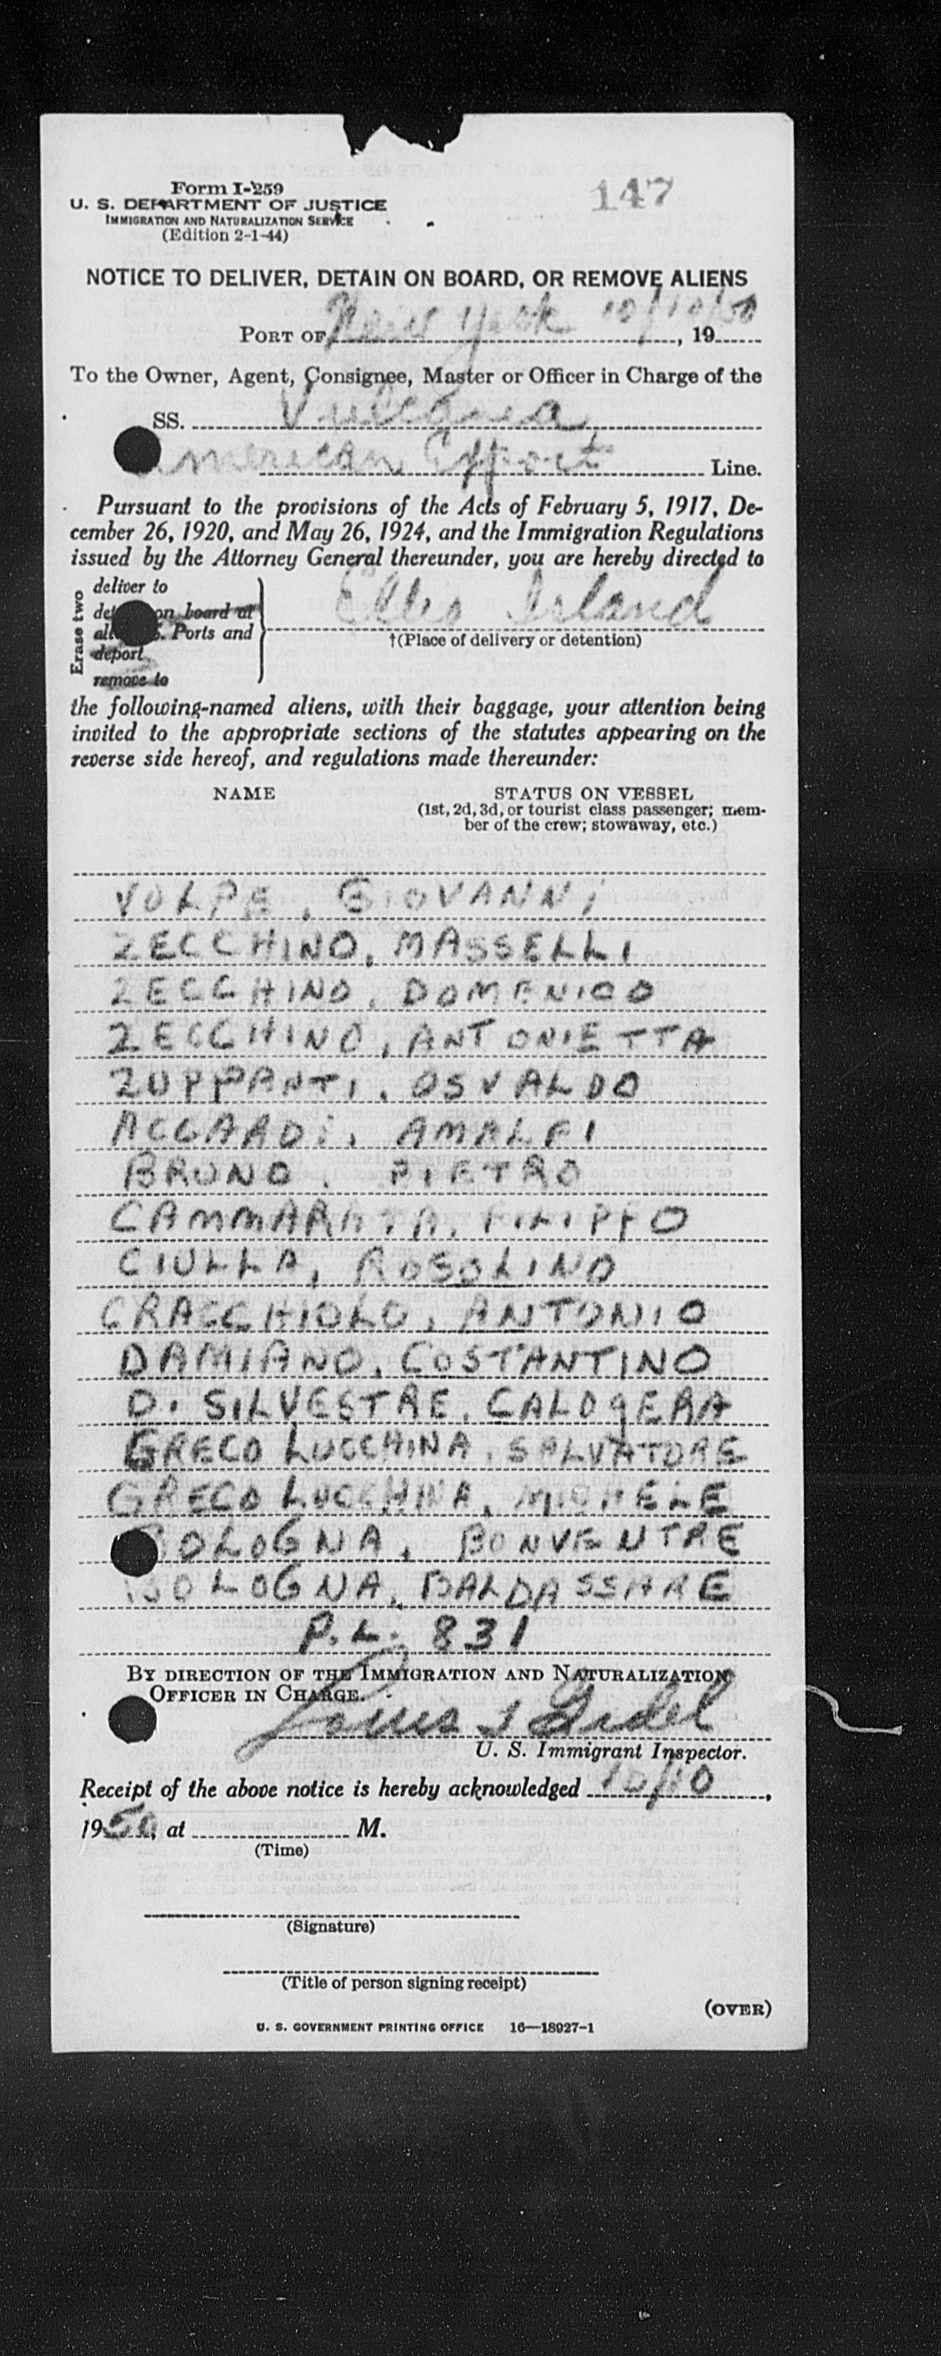 Form I-259
147
U. S. DEPARTMENT OF JUSTICE
IMMIGRATION AND NATURALIZATION SERVICE
(Edition 2-1-44)
NOTICE TO DELIVER, DETAIN ON BOARD, OR REMOVE ALIENS
PORT OF New York 10/10/50, 19
To the Owner, Agent, Consignee, Master or Officer in Charge of the
SS. Vulcania
American Export Line.
Pursuant to the provisions of the Acts of February 5, 1917, De-
cember 26, 1920, and May 26, 1924, and the Immigration Regulations
issued by the Attorney General thereunder, you are hereby directed to
Erase two
deliver to
on board at
Ports and
deport
remove to
Ellis Island
†(Place of delivery or detention)
the following-named aliens, with their baggage, your attention being
invited to the appropriate sections of the statutes appearing on the
reverse side hereof, and regulations made thereunder:
NAME STATUS ON VESSEL
(1st, 2d, 3d, or tourist class passenger; mem-
ber of the crew; stowaway, etc.)
VOLPE, GIOVANNI
ZECCHINO, MASSELLI
ZECCHINO, DOMENICO
ZECCHINO, ANTONIETTA
ZUPPANTI, OSVALDO
ACCARDI, AMALFI
BRUNO, PIETRO
CAMMARATA, FILIPPO
CIULLA, ROSOLINO
CRACCHIOLO, ANTONIO
DAMIANO, COSTANTINO
D. SILVESTRE, CALOGERA
GRECO LUCCHINA, SALVATORE
GRECO LUCCHINA, MICHELE
BOLOGNA, BONVENTRE
BOLOGNA, BALDASSARE
P.L. 831
BY DIRECTION OF THE IMMIGRATION AND NATURALIZATION
OFFICER IN CHARGE.
Louis I Fidel
U. S. Immigrant Inspector.
Receipt of the above notice is hereby acknowledged 10/10,
1950, at M.
(Time)
(Signature)
(Title of person signing receipt)
(OVER)
U. S. GOVERNMENT PRINTING OFFICE 16—18927-1